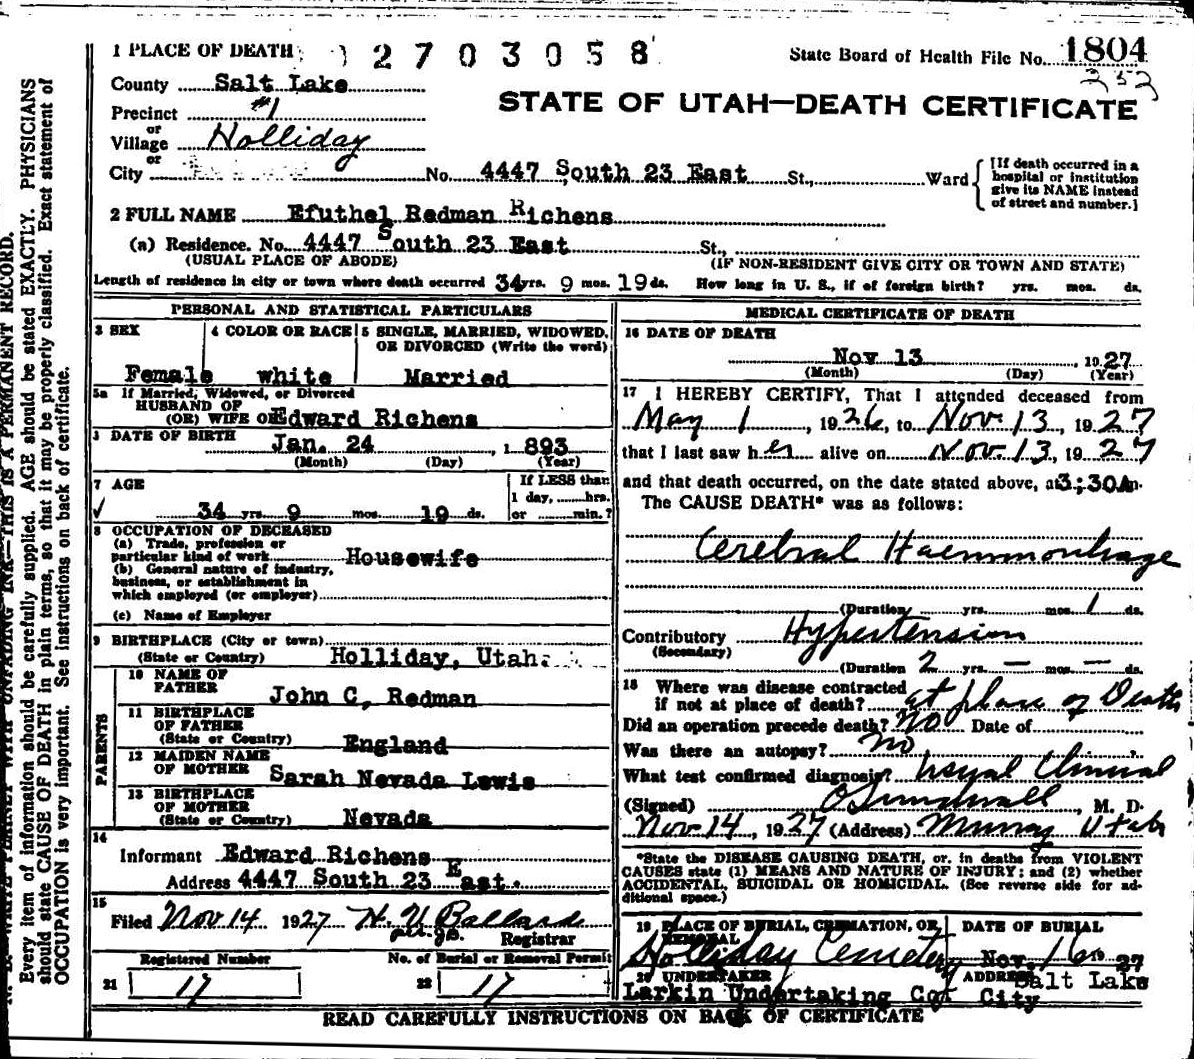 1 PLACE OF DEATH 2703058 State Board of Health File No. 1804
County Salt Lake 352
STATE OF UTAH—DEATH CERTIFICATE
Precinct #1
or
Village Holliday
or
City No. 4447 South 23 East St., Ward
[If death occurred in a hospital or institution give its NAME instead of street and number.]
2 FULL NAME Efuthel Redman Richens
(a) Residence. No. 4447 South 23 East St.,
(USUAL PLACE OF ABODE) (IF NON-RESIDENT GIVE CITY OR TOWN AND STATE)
Length of residence in city or town where death occurred 34 yrs. 9 mos. 19 ds. How long in U. S., if of foreign birth? yrs. mos. ds.
PERSONAL AND STATISTICAL PARTICULARS
3 SEX 4 COLOR OR RACE 5 SINGLE, MARRIED, WIDOWED, OR DIVORCED (Write the word)
Female white Married
5a If Married, Widowed, or Divorced
HUSBAND OF
(OR) WIFE OF Edward Richens
DATE OF BIRTH Jan. 24, 1893
(Month) (Day) (Year)
7 AGE If LESS than
1 day, hrs.
34 yrs. 9 mos. 19 ds. or min.?
8 OCCUPATION OF DECEASED
(a) Trade, profession or
particular kind of work Housewife
(b) General nature of industry,
business, or establishment in
which employed (or employer)
(c) Name of Employer
9 BIRTHPLACE (City or town)
(State or Country) Holliday, Utah.
PARENTS
10 NAME OF
FATHER John C, Redman
11 BIRTHPLACE
OF FATHER
(State or Country) England
12 MAIDEN NAME
OF MOTHER Sarah Nevada Lewis
13 BIRTHPLACE
OF MOTHER
(State or Country) Nevada
14
Informant Edward Richens
Address 4447 South 23 East.
15
Filed Nov 14 1927 H. U Ballard
Registrar
Registered Number No. of Burial or Removal Permit
21 17 22 17
MEDICAL CERTIFICATE OF DEATH
16 DATE OF DEATH
Nov 13, 1927
(Month) (Day) (Year)
17 I HEREBY CERTIFY, That I attended deceased from
May 1, 1926, to Nov. 13, 1927
that I last saw her alive on Nov. 13, 1927
and that death occurred, on the date stated above, at 3;30A m.
The CAUSE DEATH* was as follows:
Cerebral Haemmorrhage
(Duration yrs. mos. 1 ds.
Contributory Hypertension
(Secondary)
(Duration 2 yrs. — mos. — ds.
18 Where was disease contracted
if not at place of death? at place of Death
Did an operation precede death? No Date of
Was there an autopsy? no
What test confirmed diagnosis? Usual Clinical
(Signed) M. D.
Nov. 14, 1927 (Address) Murray Utah
*State the DISEASE CAUSING DEATH, or, in deaths from VIOLENT
CAUSES state (1) MEANS AND NATURE OF INJURY; and (2) whether
ACCIDENTAL, SUICIDAL OR HOMICIDAL. (See reverse side for additional space.)
19 PLACE OF BURIAL, CREMATION, OR REMOVAL DATE OF BURIAL
Holliday Cemetery Nov. 16 27
20 UNDERTAKER ADDRESS Salt Lake
Larkin Undertaking Co. City
READ CAREFULLY INSTRUCTIONS ON BACK OF CERTIFICATE
WRITE PLAINLY WITH UNFADING INK—THIS IS A PERMANENT RECORD.
Every item of information should be carefully supplied. AGE should be stated EXACTLY. PHYSICIANS
should state CAUSE OF DEATH in plain terms, so that it may be properly classified. Exact statement of
OCCUPATION is very important. See instructions on back of certificate.